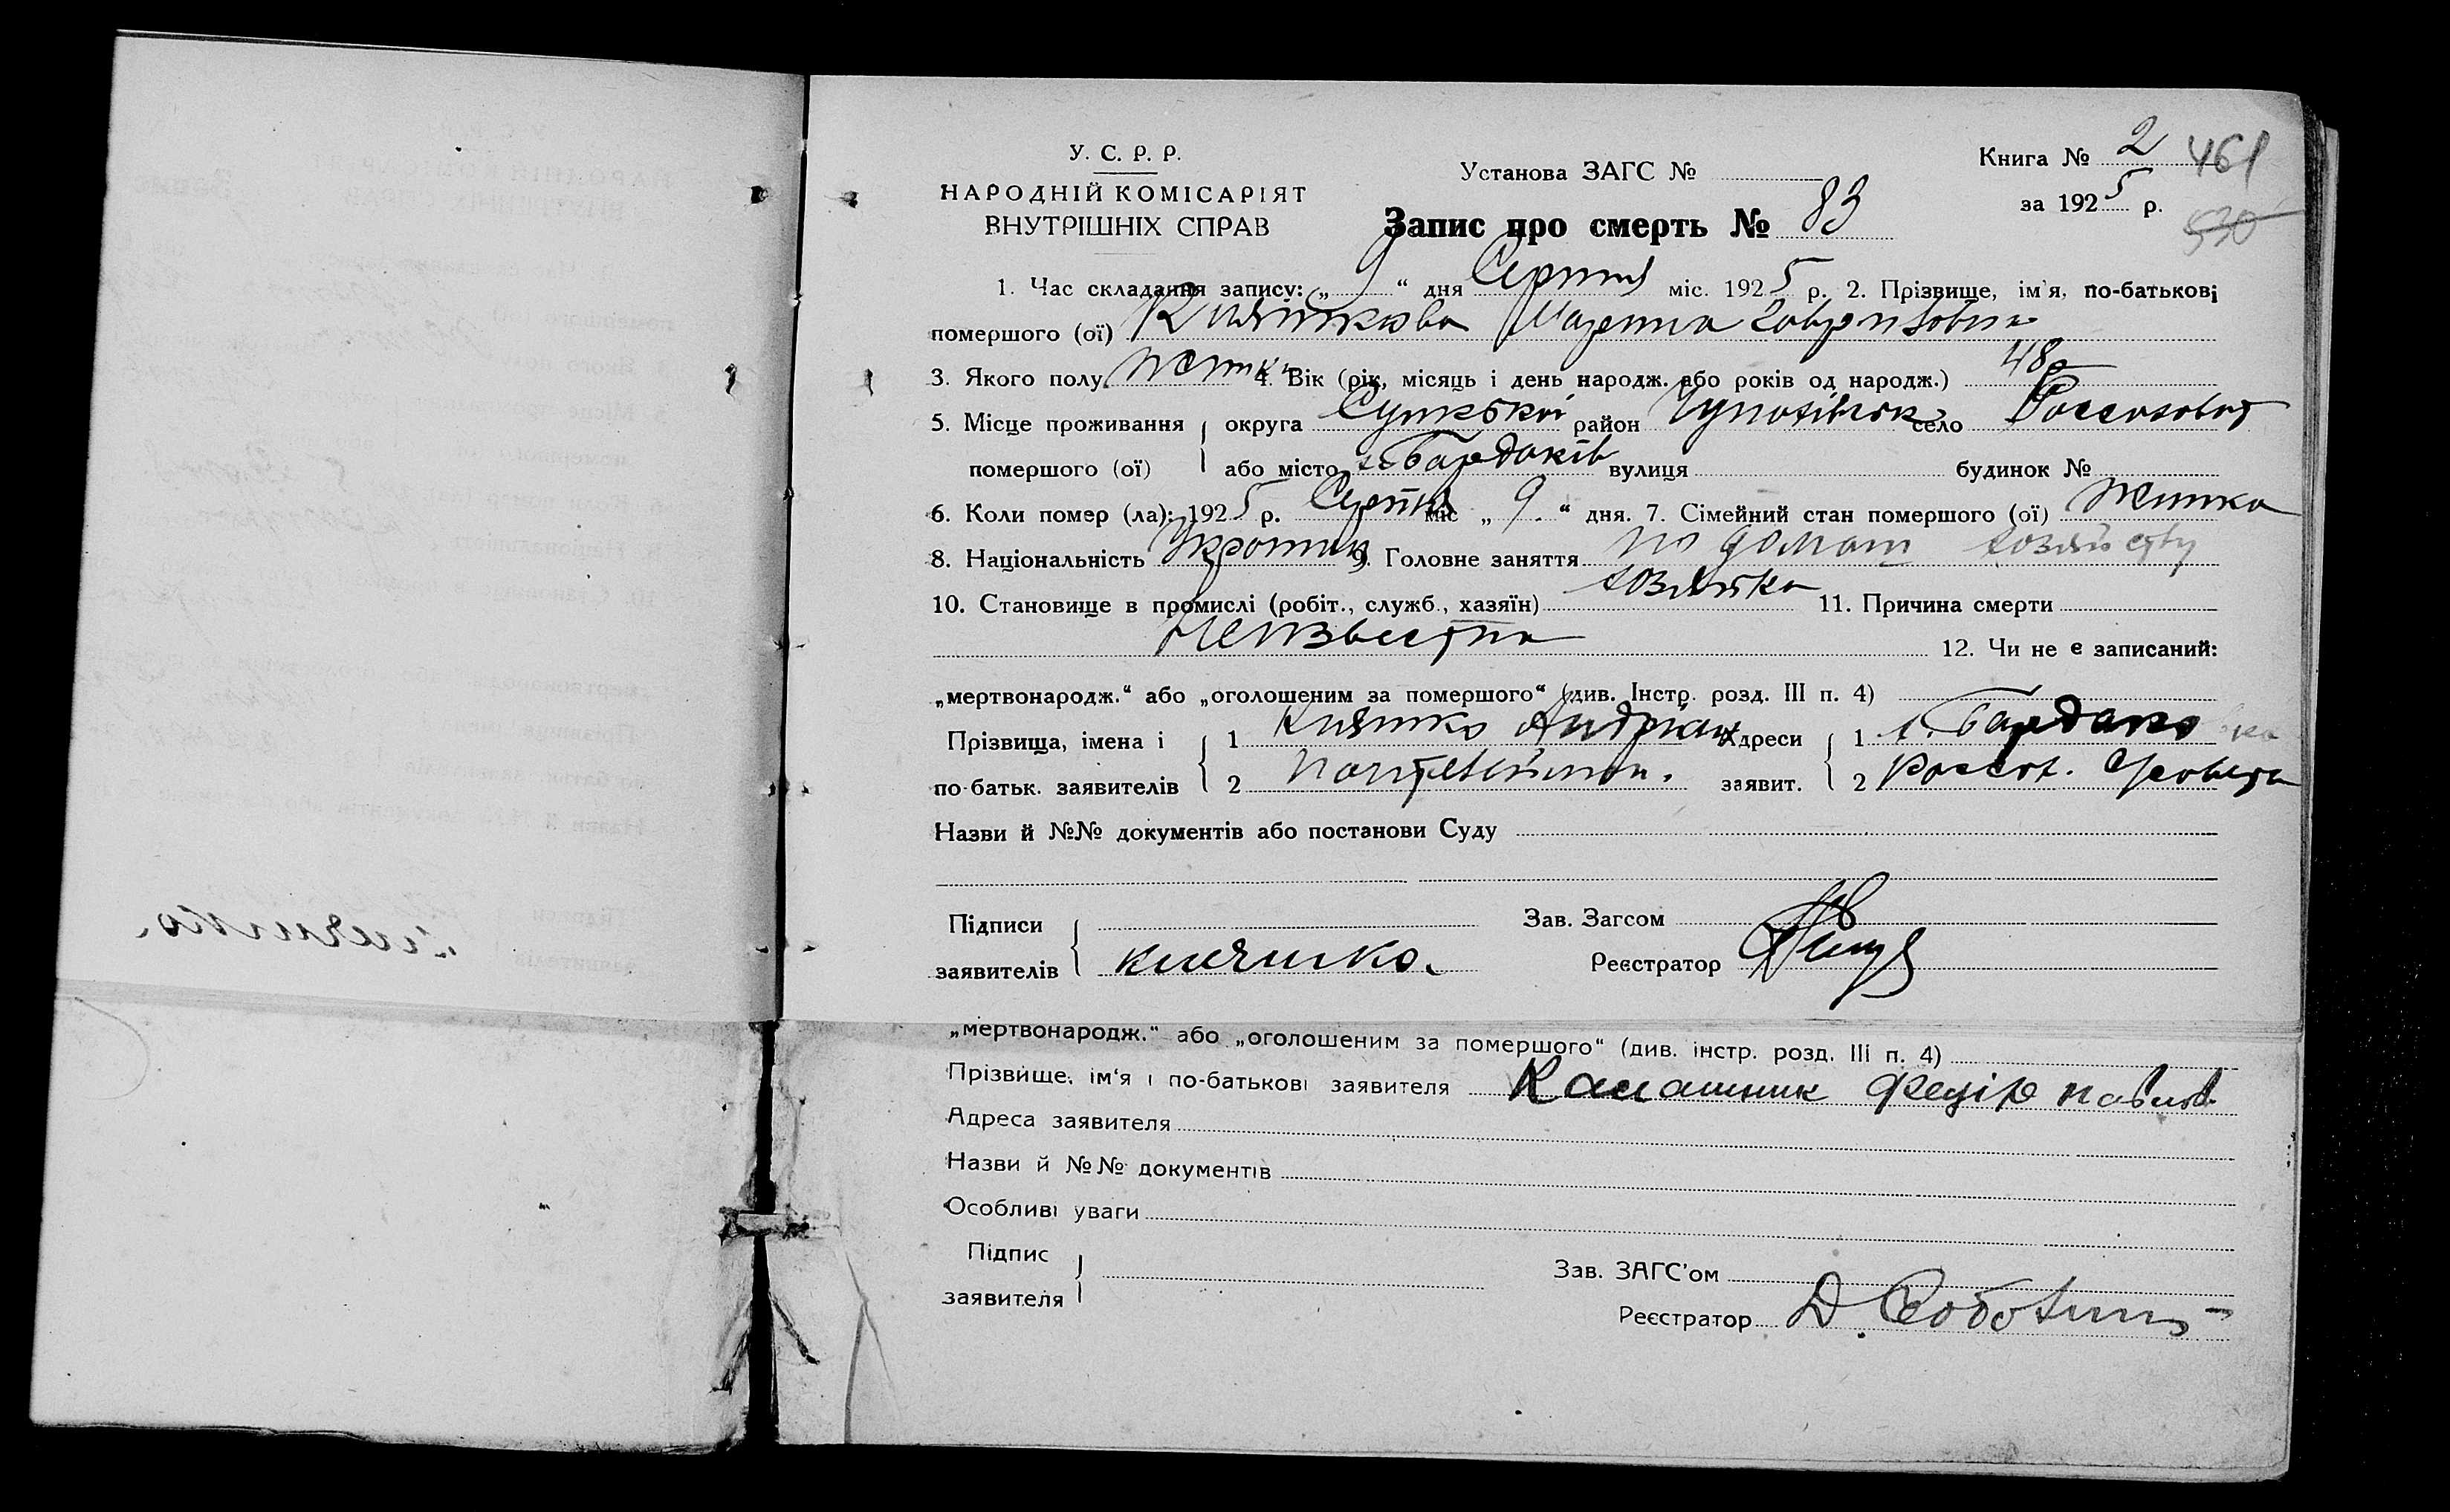 У. С. Р. Р.
НАРОДНІЙ КОМІСАРІЯТ
ВНУТРІШНІХ СПРАВ
Установа ЗАГС №
Запис про смерть № 83
Книга № 2 461
за 1925 р.
530
1. Час складання запису: „ 9 “ дня Серпня міс. 1925 р. 2. Прізвище, ім'я, по-батькові
помершого (ої)
3. Якого полу 4. Вік (рік, місяць і день народж. або років од народж.) 48
5. Місце проживання округа Сумської район село
помершого (ої) або місто х. Бардаків вулиця будинок №
6. Коли помер (ла): 1925 р. Серпня міс „ 9. “ дня. 7. Сімейний стан помершого (ої)
8. Національність 9. Головне заняття по домаш хозяйству
10. Становище в промислі (робіт., служб., хазяїн) хозяйка 11. Причина смерти
Неизвестна 12. Чи не є записаний:
„мертвонародж.“ або „оголошеним за помершого“ (див. Інстр. розд. III п. 4)
Прізвища, імена і 1 Кияшко Андріан Адреси 1
по-батьк. заявителів 2 заявит. 2
Назви й №№ документів або постанови Суду
Підписи Зав. Загсом
заявителів Кияшко. Реєстратор
„мертвонародж.“ або „оголошеним за помершого“ (див. інстр. розд. III п. 4)
Прізвище, ім'я і по-батькові заявителя Калашник Федір Павлов
Адреса заявителя
Назви й №№ документів
Особливі уваги
Підпис Зав. ЗАГС'ом
заявителя Реєстратор Д.